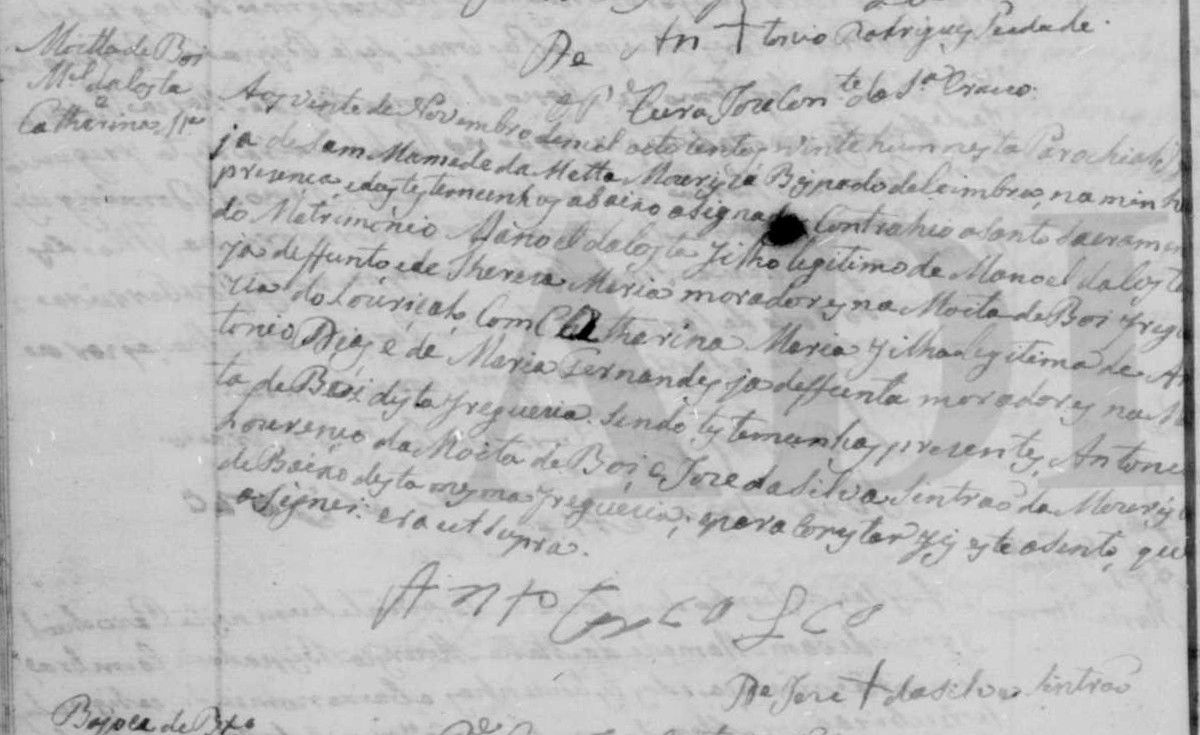 De An + tonio Rodrigues Piedade.
Moitta de Boi
M.el da Costa
Catherina
Cura Joze
Aos vinte de Novembro de mil oitocentos vinte hum nesta Parochial
ja de Sam Mamede da Matta Mourisca Bispado de Coimbra, na minha
presença, e das testemunhas abaixo asignadas Contrahio o Santo Sacramen
do Matrimonio Manoel da Costa filho legitimo de Manoel da Costa
ja deffunto e de Thereza Maria moradores na Moita de Boi fregue
zia do Louriçal, com Catherina Maria filha legitima de An
tonio Dias, e de Maria Fernandes ja deffunta moradores na M
ta de Boi desta freguezia. Sendo testemunhas prezentes, Antonio
Lourenço da Moita de Boi, e Joze da Silva Sintrão da Mourisca
de Baixo desta mesma freguezia; e para constar fis este asento, que
asignei: era ut supra.
Anto
De Joze + da Silva Sintrão
Bajoca de Bxo
ADL